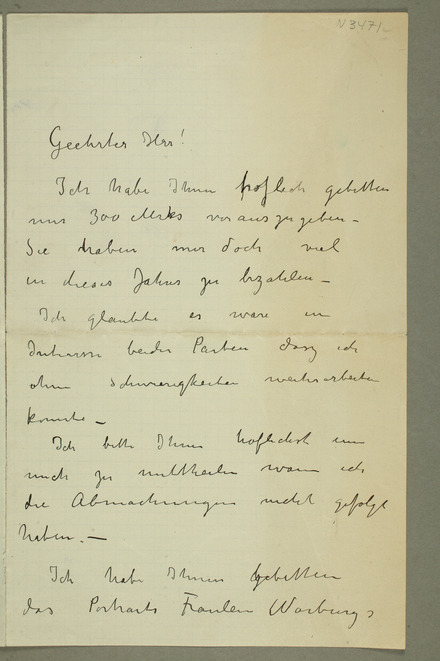 N 3471
Geehrter Herr!
Ich habe Ihnen hoflich gebitten
mir 300 Merks vorauszugeben –
Sie haben mir doch viel
in dieses Jahres zu bezahlen –
Ich glaubte es ware im
Interesse beider Parten dasz ich
ohne Schwierigkeiten weiterarbeiten
konnte –
Ich bitte Ihnen hoflichst um
mich zu mittheilen wann ich
die Abmachungen nicht gefolgt
haben. –
Ich habe Ihnen gebitten
das Portraits Fraulen Warburgs